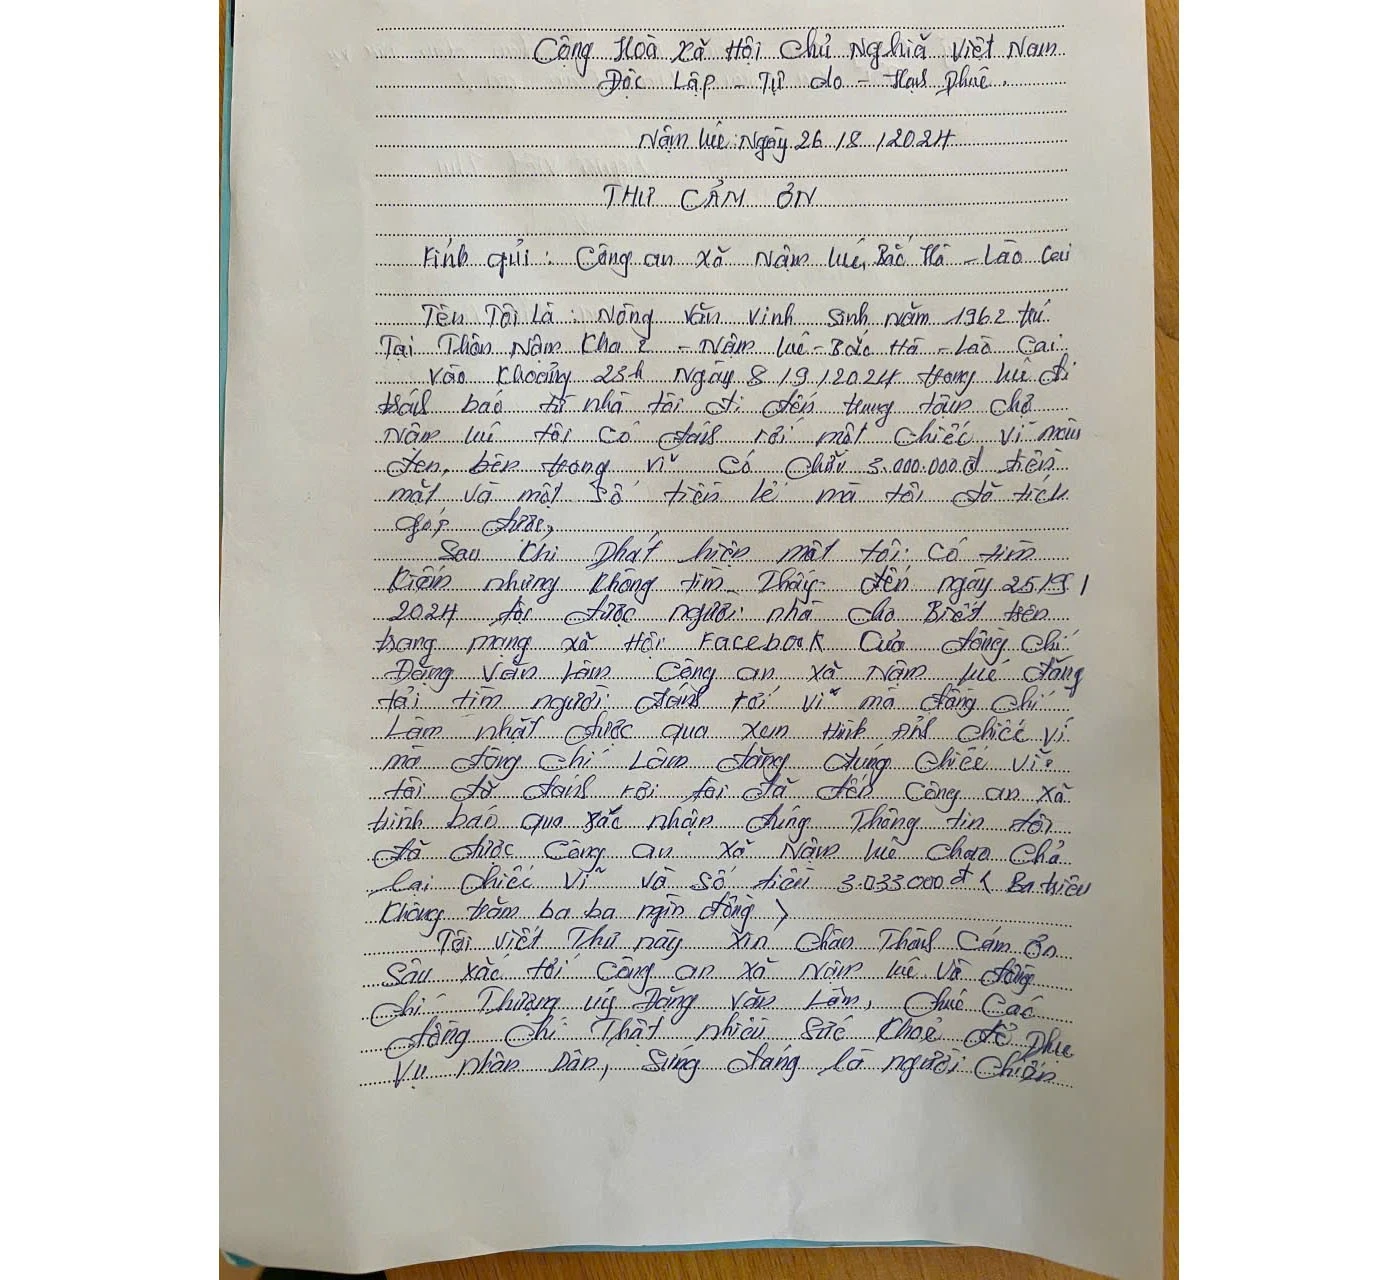 Cộng Hoà Xã Hội Chủ Nghiã Việt Nam
Độc Lập - Tự do - Hạnh Phúc.
Nậm lúc Ngày 26 / 8 / 2024
THƯ CẢM ƠN
Kính gửi: Công an xã Nậm lúc, Bắc Hà - Lào Cai
Tên Tôi Là: Nông Văn Vinh Sinh Năm 1962 trú
Tại Thôn Nậm Kha 2 - Nậm lúc - Bắc Hà - Lào Cai
Vào Khoảng 23h Ngày 8 / 9 / 2024 trong lúc đi
bão từ nhà tôi đi đến trung tâm chợ
Nậm lúc tôi có đánh rơi một chiếc ví màu
đen, bên trong ví có chứa 3.000.000đ tiền
mặt và một số tiền lẻ mà tôi đã tích
góp được,
Sau Khi Phát hiện mất tôi có tìm
Kiếm nhưng Không tìm Thấy đến ngày 25/9/
2024 tôi được người nhà cho Biết trên
trang mạng xã Hội Facebook Của đồng Chí
Đặng Văn Lâm Công an xã Nậm lúc đăng
tải tìm người đánh rơi ví mà đồng Chí
Lâm nhặt được qua xem Hình Ảnh Chiếc Ví
mà đồng Chí Lâm đăng đúng Chiếc Ví
tôi đã đánh rơi tôi đã đến Công an xã
trình báo qua xác nhận đúng Thông tin tôi
đã được Công an xã Nậm lúc chao Chả
lại Chiếc Ví và Số tiền 3.033.000đ ( Ba triệu
Không trăm ba ba nghìn đồng )
Tôi Viết Thư này Xin Chân Thành Cảm Ơn
Sâu xắc tới Công an xã Nậm lúc Và đồng
Chí Thượng uý Đặng Văn Lâm, Chúc Các
đồng Chí Thật nhiều Sức Khoẻ để Phục
Vụ nhân Dân, Sứng đáng là người Chiến